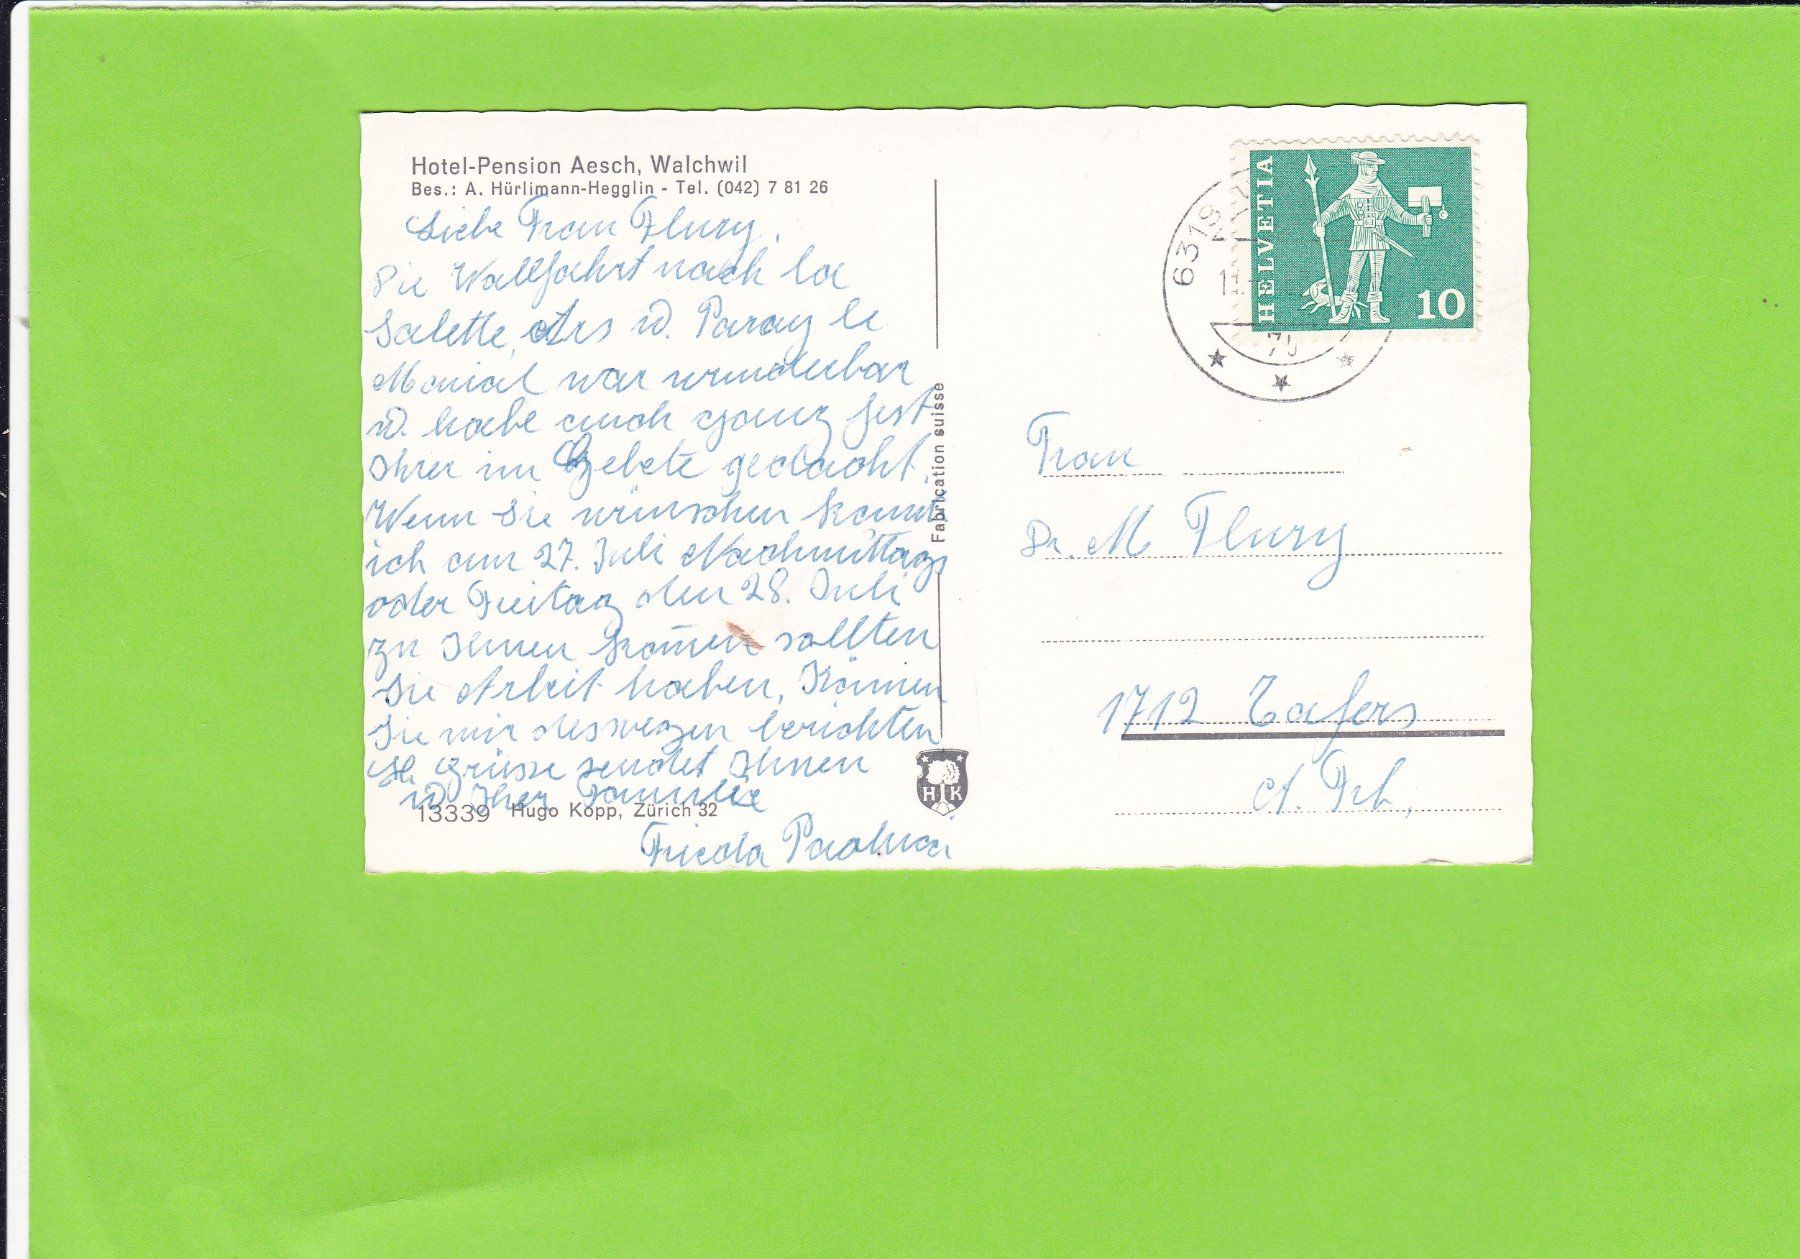 Hotel-Pension Aesch, Walchwil
Bes.: A. Hürlimann-Hegglin - Tel. (042) 7 81 26
Liebe Frau Flury,
Die Wallfahrt nach la
Salette, Ars u. Paray le
Monial war wunderbar
u. habe auch ganz fest
Ihrer im Gebete gedacht.
Wenn Sie wünschen kann
ich am 27. Juli Nachmittags
oder Freitag den 28. Juli
zu Ihnen kom̄en sollten
Sie Arbeit haben, Können
Sie mir deswegen berichten
Hl. Grüsse sendet Ihnen
u. Ihrer Familie
13339 Hugo Kopp, Zürich 32
Frieda Paolucci
Fabrication suisse
H K
6318
HELVETIA
10
Frau
Dr. M Flury
1712 Tafers
Ct. Frb.